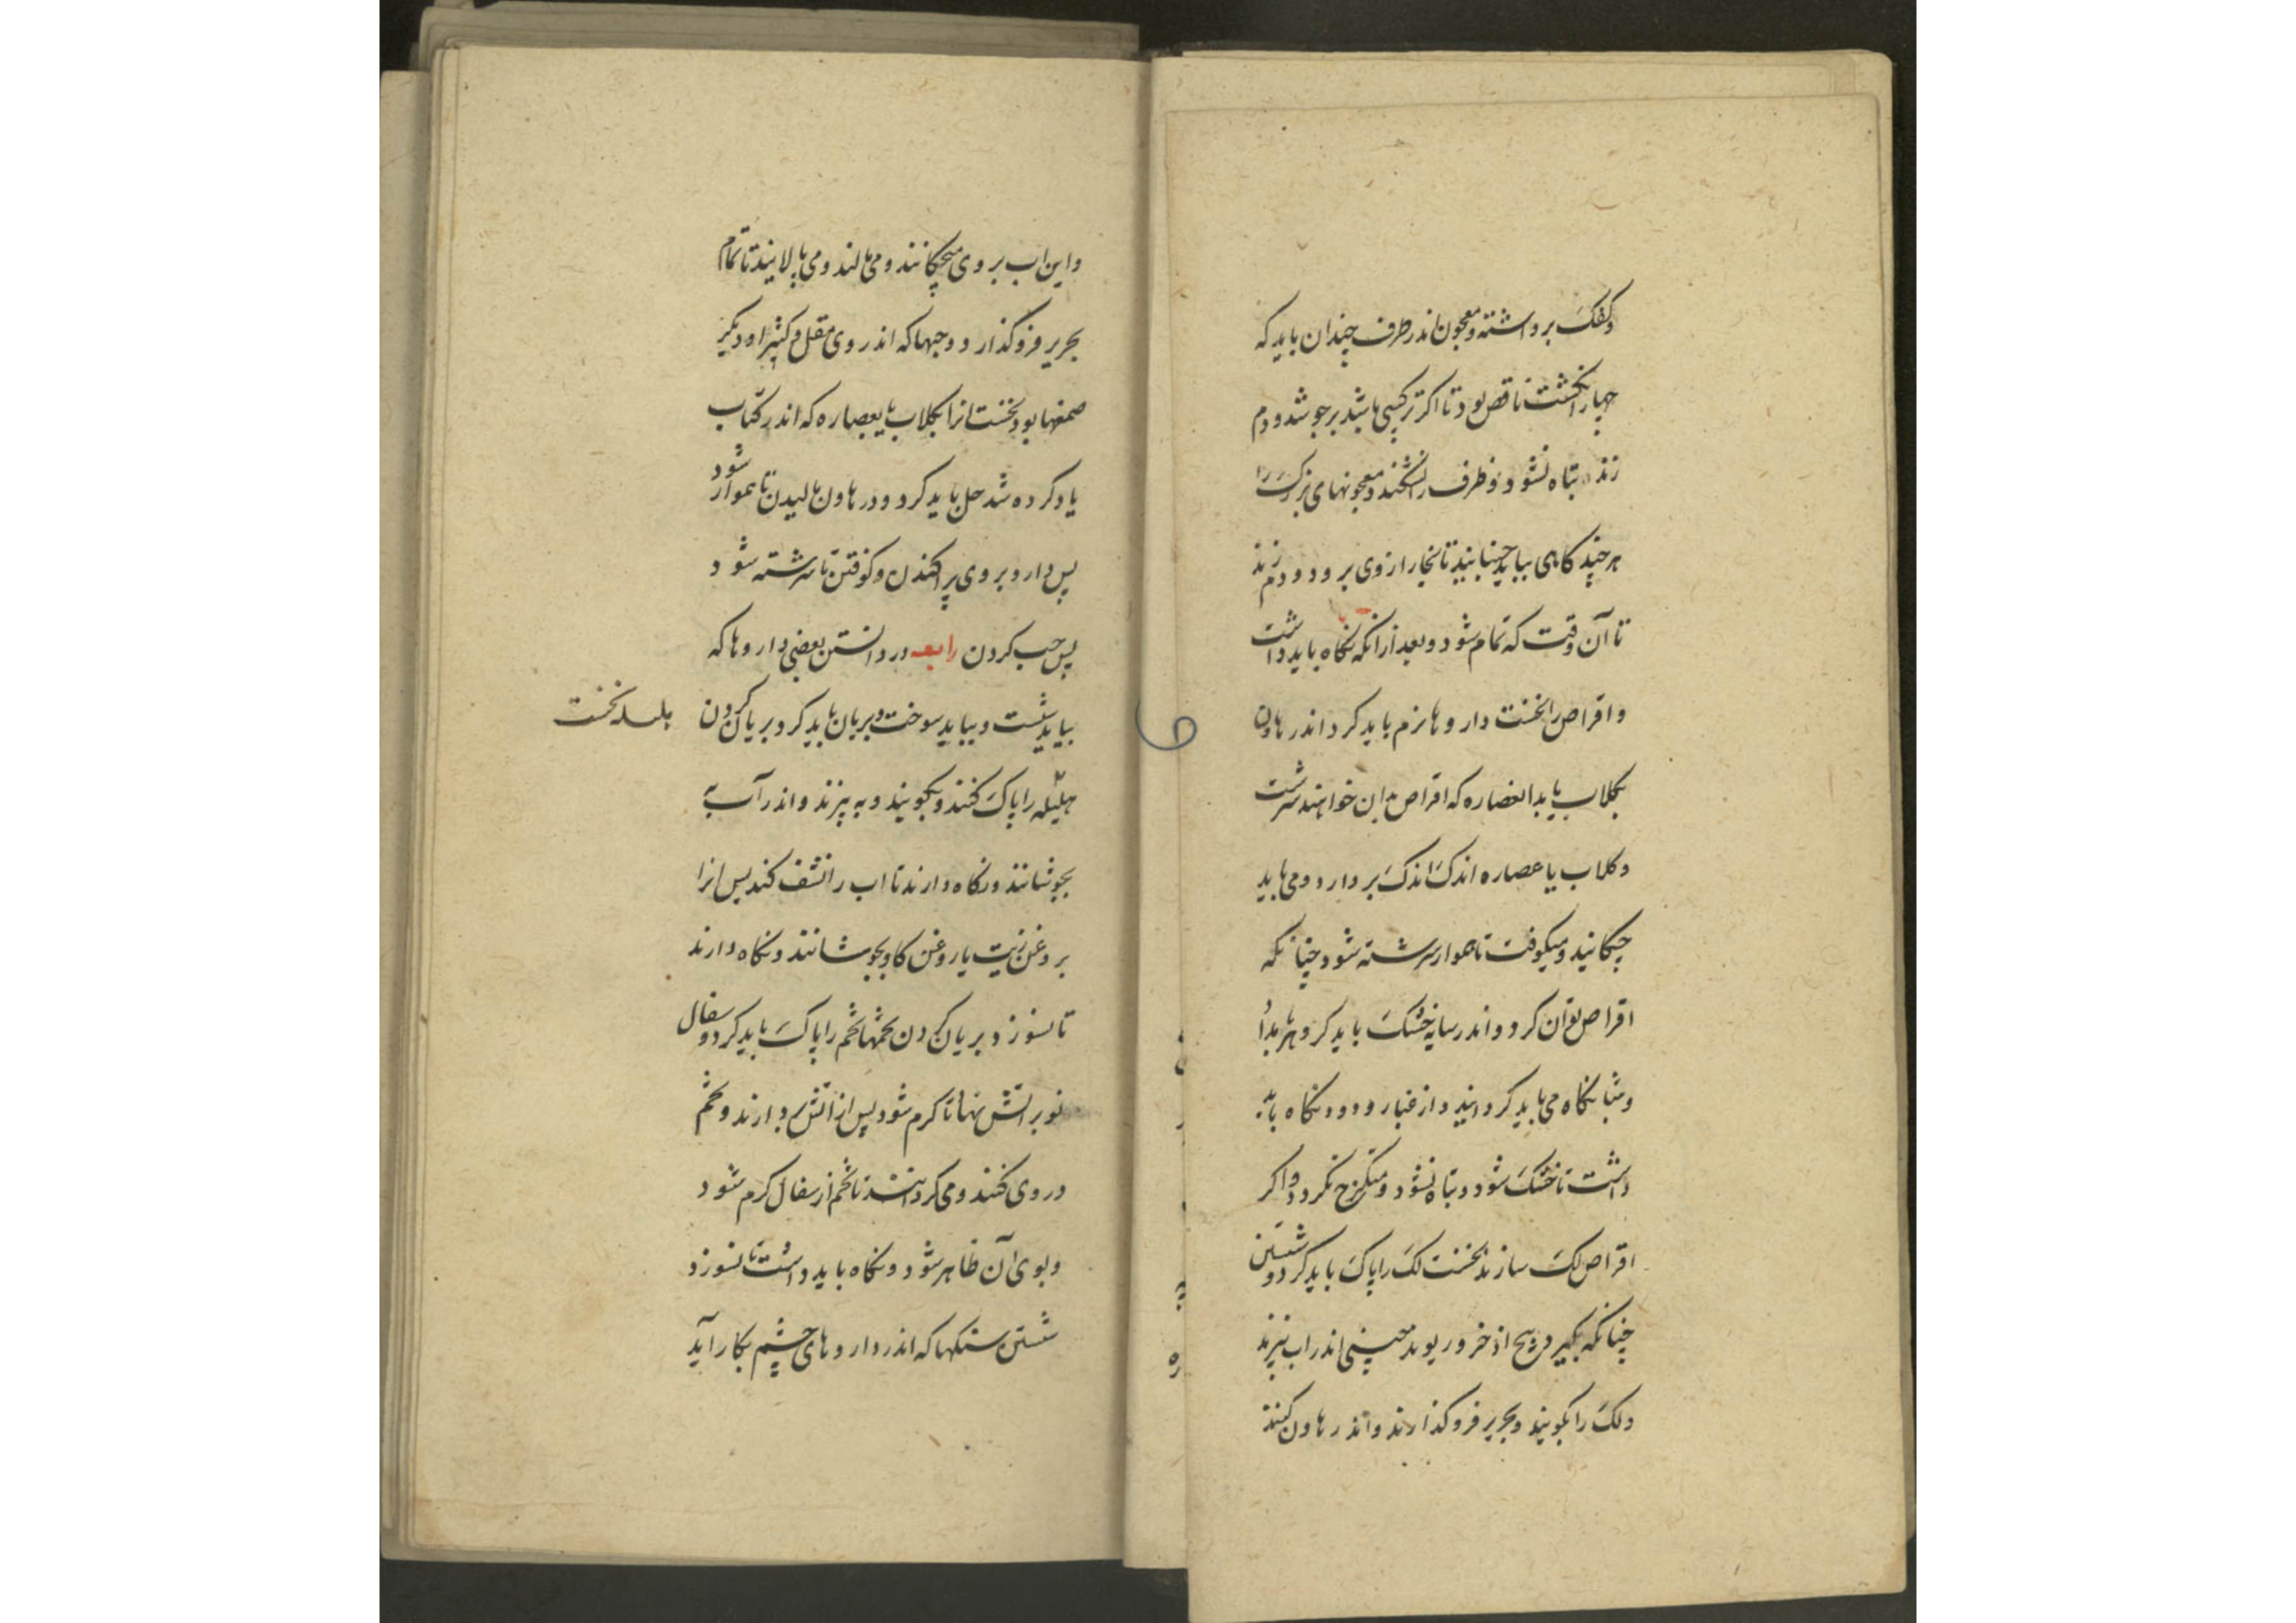 و کفک برداشته و معجون اندر ظرف چندان باید که
چهار انکشت ناقص بود تا اکر ترکیبی باشد برجوشد و دم
زند تباه نشود و ظرف را نشکند و معجونهای بزرک را
هر چند کاهی بباید جنبانید تا بخار از وی برود و دم زند
تا آن وقت که تمام شود و بعد از انکه نکاه باید داشت
و اقراص را نخست داروها نرم باید کرد اندر هاون
بکلاب یا بدان عصاره که اقراص بدان خواهند سرشت
و کلاب یا عصاره اندک اندک بر دارو می باید
چکانید و میکوفت تا هموار سرشته شود چنانکه
اقراص توان کرد و اندر سایه خشک باید کرد و هر بامداد
و شبانکاه می باید کردانید و از غبار و دود نکاه باید
داشت تا خشک شود و تباه نشود و متکرج نکردد و اکر
اقراص لک سازند نخست لک را پاک باید کرد و شستن
چنانکه بکیرد بیخ اذخر و ریوند چینی اندر اب بپزند
و لک را بکوبند و بحریر فرو کذارند و اندر هاون کنند
و این اب بر وی میچکانند و می مالند و می پالایند تا تمام
بحریر فرو کذارد و حبها که اندر وی مقل و کثیرا و دیکر
صمغها بود نخست انرا بکلاب یا بعصاره که اندر کتاب
یاد کرده شد حل باید کرد و در هاون مالیدن تا هموار شود
پس دارو بر وی پراکندن و کوفتن تا سرشته شود
پس حب کردن رابعه در دانستن بعضی داروها که
بباید شست و بباید سوخت و بریان باید کرد و بریان کردن
هلیله را پاک کنند و بکوبند و به پزند و اندر آب به
بجوشانند و نکاه دارند تا اب را نشف کند پس انرا
بروغن زیت یا روغن کاو بجوشانند و نکاه دارند
تا نسوزد بریان کردن تخمها تخم را پاک باید کرد و سفال
نو بر اتش نهاد تا کرم شود پس از اتش بردارند و تخم
در وی کنند و می کردانند تا تخم از سفال کرم شود
و بوی آن ظاهر شود و نکاه باید داشت تا نسوزد
شستن سنکها که اندر داروهای چشم بکار آید